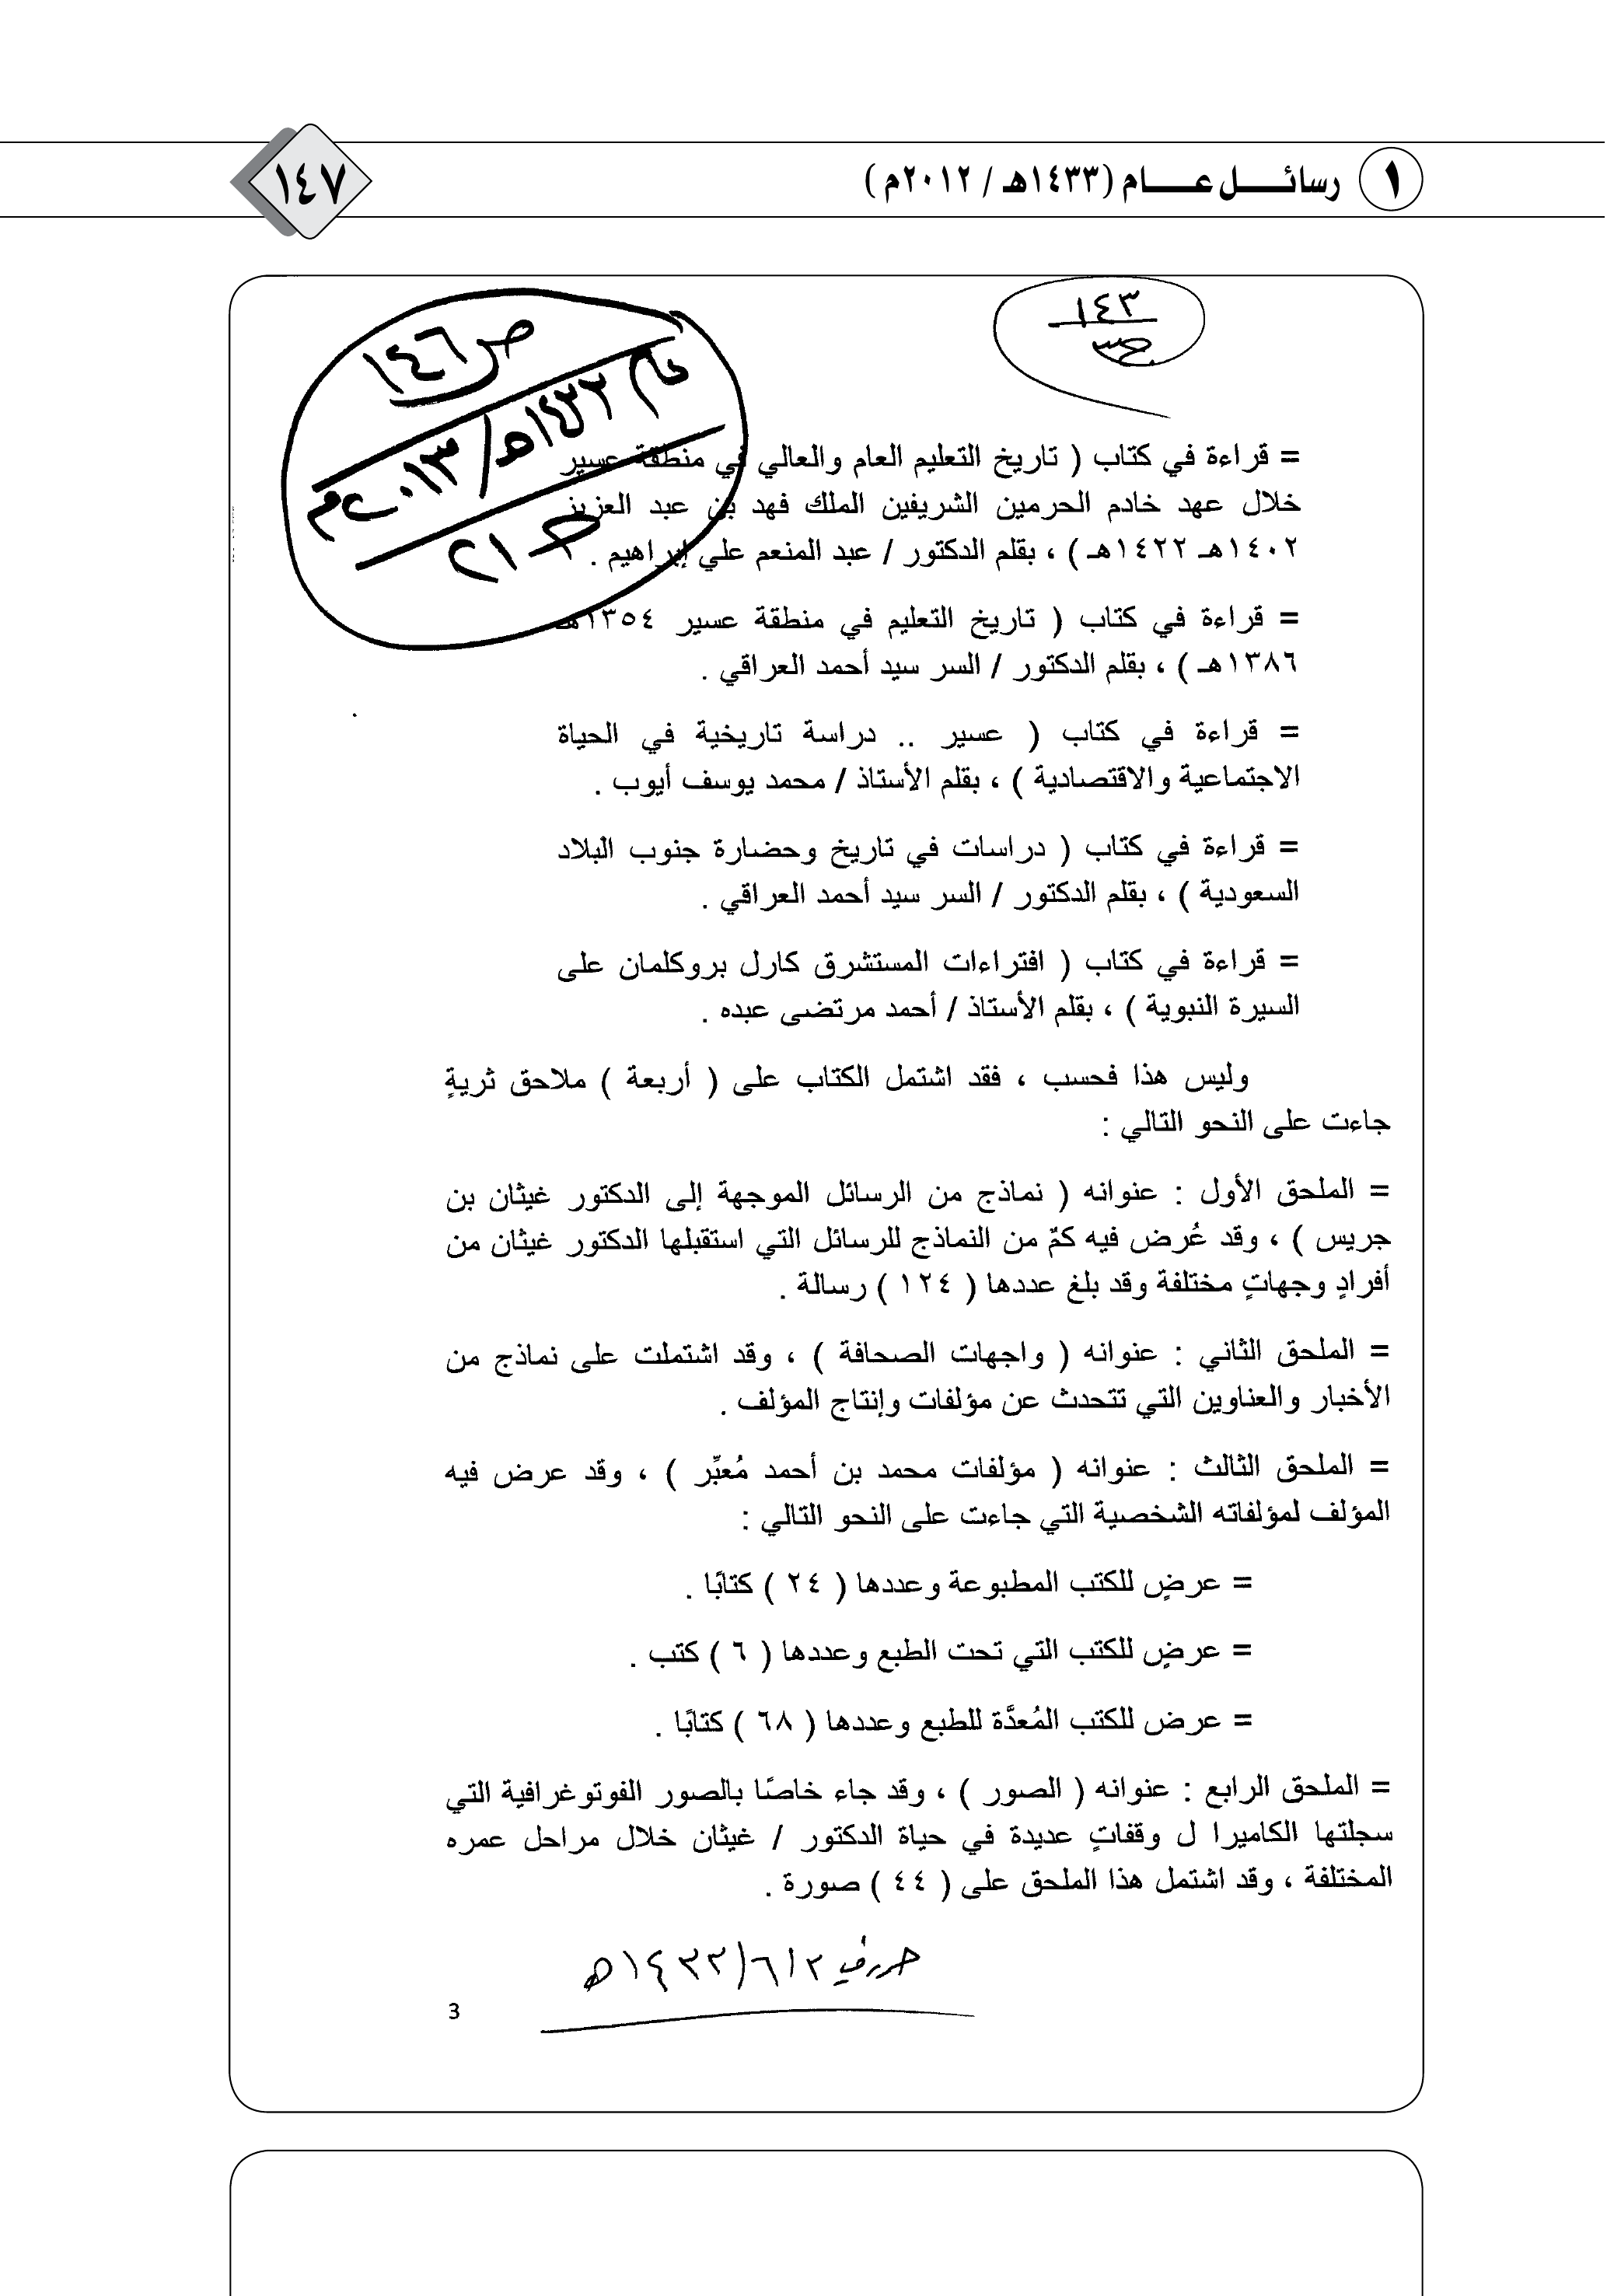 ١ رسائل عام (١٤٣٣هـ / ٢٠١٢م) ١٤٧
١٤٣
ص ١٤٦
= قراءة في كتاب ( تاريخ التعليم العام والعالي في منطقة عسير
خلال عهد خادم الحرمين الشريفين الملك فهد بن عبد العزيز
١٤٠٢هـ ١٤٢٢هـ ) ، بقلم الدكتور / عبد المنعم علي إبراهيم .
= قراءة في كتاب ( تاريخ التعليم في منطقة عسير ١٣٥٤هـ
١٣٨٦هـ ) ، بقلم الدكتور / السر سيد أحمد العراقي .
= قراءة في كتاب ( عسير .. دراسة تاريخية في الحياة
الاجتماعية والاقتصادية ) ، بقلم الأستاذ / محمد يوسف أيوب .
= قراءة في كتاب ( دراسات في تاريخ وحضارة جنوب البلاد
السعودية ) ، بقلم الدكتور / السر سيد أحمد العراقي .
= قراءة في كتاب ( افتراءات المستشرق كارل بروكلمان على
السيرة النبوية ) ، بقلم الأستاذ / أحمد مرتضى عبده .
وليس هذا فحسب ، فقد اشتمل الكتاب على ( أربعة ) ملاحق ثريةٍ
جاءت على النحو التالي :
= الملحق الأول : عنوانه ( نماذج من الرسائل الموجهة إلى الدكتور غيثان بن
جريس ) ، وقد عُرض فيه كمٌ من النماذج للرسائل التي استقبلها الدكتور غيثان من
أفرادٍ وجهاتٍ مختلفة وقد بلغ عددها ( ١٢٤ ) رسالة .
= الملحق الثاني : عنوانه ( واجهات الصحافة ) ، وقد اشتملت على نماذج من
الأخبار والعناوين التي تتحدث عن مؤلفات وإنتاج المؤلف .
= الملحق الثالث : عنوانه ( مؤلفات محمد بن أحمد مُعبِّر ) ، وقد عرض فيه
المؤلف لمؤلفاته الشخصية التي جاءت على النحو التالي :
= عرضٍ للكتب المطبوعة وعددها ( ٢٤ ) كتابًا .
= عرضٍ للكتب التي تحت الطبع وعددها ( ٦ ) كتب .
= عرض للكتب المُعدَّة للطبع وعددها ( ٦٨ ) كتابًا .
= الملحق الرابع : عنوانه ( الصور ) ، وقد جاء خاصًا بالصور الفوتوغرافية التي
سجلتها الكاميرا ل وقفاتٍ عديدة في حياة الدكتور / غيثان خلال مراحل عمره
المختلفة ، وقد اشتمل هذا الملحق على ( ٤٤ ) صورة .
3